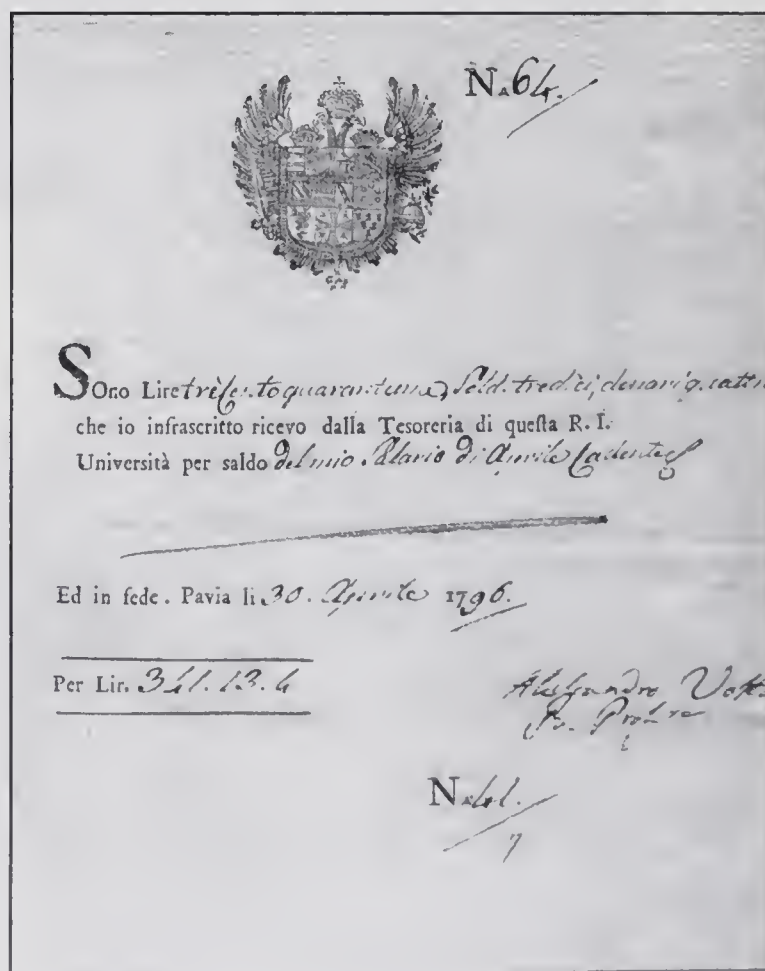 N.A 64.
SOno Lire trecento quarantuna, Sold. tredici, denari quattr
che io infrascritto ricevo dalla Tesoreria di questa R. I.
Università per saldo del mio Salario di Aprile cadente
Ed in fede. Pavia li 30. Aprile 1796.
Per Lir. 341.13.4
Alessandro Volta
Pr. Profre
N.A 41.
7